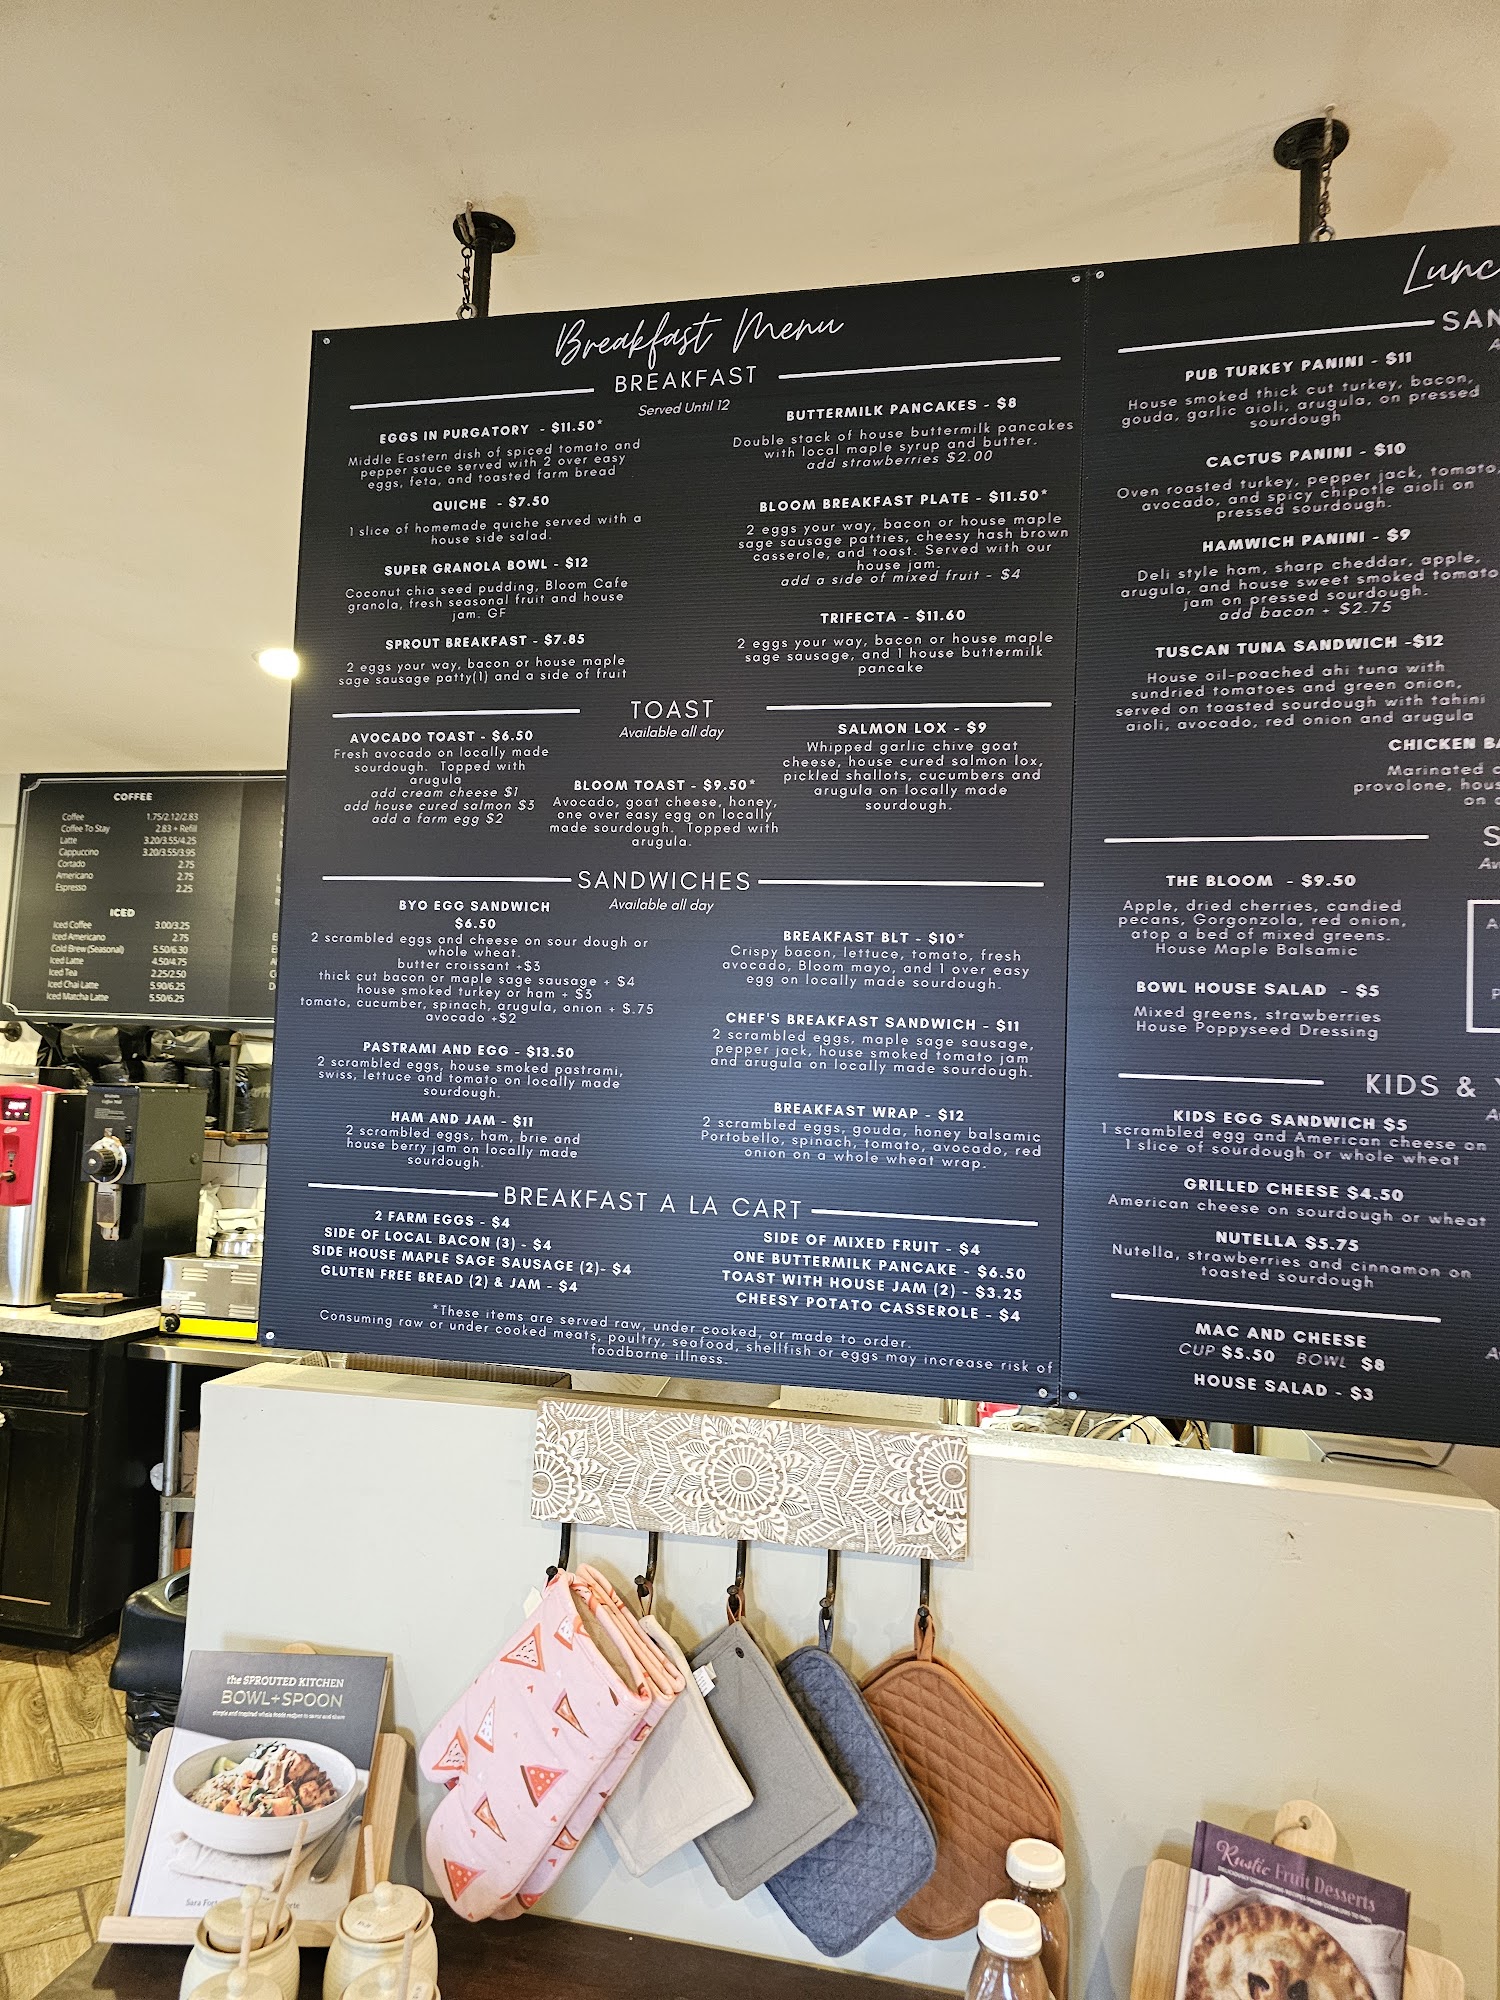 Breakfast Menu
BREAKFAST
Served Until 12
EGGS IN PURGATORY - $11.50*
Middle Eastern dish of spiced tomato and
pepper sauce served with 2 over easy
eggs, feta, and toasted farm bread
QUICHE - $7.50
1 slice of homemade quiche served with a
house side salad.
SUPER GRANOLA BOWL - $12
Coconut chia seed pudding, Bloom Cafe
granola, fresh seasonal fruit and house
jam. GF
SPROUT BREAKFAST - $7.85
2 eggs your way, bacon or house maple
sage sausage patty(1) and a side of fruit
BUTTERMILK PANCAKES - $8
Double stack of house buttermilk pancakes
with local maple syrup and butter.
add strawberries $2.00
BLOOM BREAKFAST PLATE - $11.50*
2 eggs your way, bacon or house maple
sage sausage patties, cheesy hash brown
casserole, and toast. Served with our
house jam.
add a side of mixed fruit - $4
TRIFECTA - $11.60
2 eggs your way, bacon or house maple
sage sausage, and 1 house buttermilk
pancake
TOAST
Available all day
AVOCADO TOAST - $6.50
Fresh avocado on locally made
sourdough. Topped with
arugula
add cream cheese $1
add house cured salmon $3
add a farm egg $2
BLOOM TOAST - $9.50*
Avocado, goat cheese, honey,
one over easy egg on locally
made sourdough. Topped with
arugula.
SALMON LOX - $9
Whipped garlic chive goat
cheese, house cured salmon lox,
pickled shallots, cucumbers and
arugula on locally made
sourdough.
SANDWICHES
Available all day
BYO EGG SANDWICH
$6.50
2 scrambled eggs and cheese on sour dough or
whole wheat.
butter croissant +$3
thick cut bacon or maple sage sausage + $4
house smoked turkey or ham + $3
tomato, cucumber, spinach, arugula, onion + $.75
avocado +$2
PASTRAMI AND EGG - $13.50
2 scrambled eggs, house smoked pastrami,
swiss, lettuce and tomato on locally made
sourdough.
HAM AND JAM - $11
2 scrambled eggs, ham, brie and
house berry jam on locally made
sourdough.
BREAKFAST BLT - $10*
Crispy bacon, lettuce, tomato, fresh
avocado, Bloom mayo, and 1 over easy
egg on locally made sourdough.
CHEF'S BREAKFAST SANDWICH - $11
2 scrambled eggs, maple sage sausage,
pepper jack, house smoked tomato jam
and arugula on locally made sourdough.
BREAKFAST WRAP - $12
2 scrambled eggs, gouda, honey balsamic
Portobello, spinach, tomato, avocado, red
onion on a whole wheat wrap.
BREAKFAST A LA CART
2 FARM EGGS - $4
SIDE OF LOCAL BACON (3) - $4
SIDE HOUSE MAPLE SAGE SAUSAGE (2)- $4
GLUTEN FREE BREAD (2) & JAM - $4
SIDE OF MIXED FRUIT - $4
ONE BUTTERMILK PANCAKE - $6.50
TOAST WITH HOUSE JAM (2) - $3.25
CHEESY POTATO CASSEROLE - $4
*These items are served raw, under cooked, or made to order.
Consuming raw or under cooked meats, poultry, seafood, shellfish or eggs may increase risk of
foodborne illness.
Lunc
SAN
PUB TURKEY PANINI - $11
House smoked thick cut turkey, bacon,
gouda, garlic aioli, arugula, on pressed
sourdough
CACTUS PANINI - $10
Oven roasted turkey, pepper jack, tomato,
avocado, and spicy chipotle aioli on
pressed sourdough.
HAMWICH PANINI - $9
Deli style ham, sharp cheddar, apple,
arugula, and house sweet smoked tomato
jam on pressed sourdough.
add bacon + $2.75
TUSCAN TUNA SANDWICH -$12
House oil-poached ahi tuna with
sundried tomatoes and green onion,
served on toasted sourdough with tahini
aioli, avocado, red onion and arugula
CHICKEN BA
Marinated c
provolone, hous
on
S
Av
THE BLOOM - $9.50
Apple, dried cherries, candied
pecans, Gorgonzola, red onion,
atop a bed of mixed greens.
House Maple Balsamic
BOWL HOUSE SALAD - $5
Mixed greens, strawberries
House Poppyseed Dressing
KIDS &
KIDS EGG SANDWICH $5
1 scrambled egg and American cheese on
1 slice of sourdough or whole wheat
GRILLED CHEESE $4.50
American cheese on sourdough or wheat
NUTELLA $5.75
Nutella, strawberries and cinnamon on
toasted sourdough
MAC AND CHEESE
CUP $5.50 BOWL $8
HOUSE SALAD - $3
COFFEE
Coffee 1.75/2.12/2.83
Coffee To Stay 2.83 + Refill
Latte 3.20/3.55/4.25
Cappuccino 3.20/3.55/3.95
Cortado 2.75
Americano 2.75
Espresso 2.25
ICED
Iced Coffee 3.00/3.25
Iced Americano 2.75
Cold Brew (Seasonal) 5.50/6.30
Iced Latte 4.50/4.75
Iced Tea 2.25/2.50
Iced Chai Latte 5.90/6.25
Iced Matcha Latte 5.50/6.25
the SPROUTED KITCHEN
BOWL+SPOON
simple and inspired whole foods recipes to savor and share
Sara Fort
Rustic Fruit Desserts